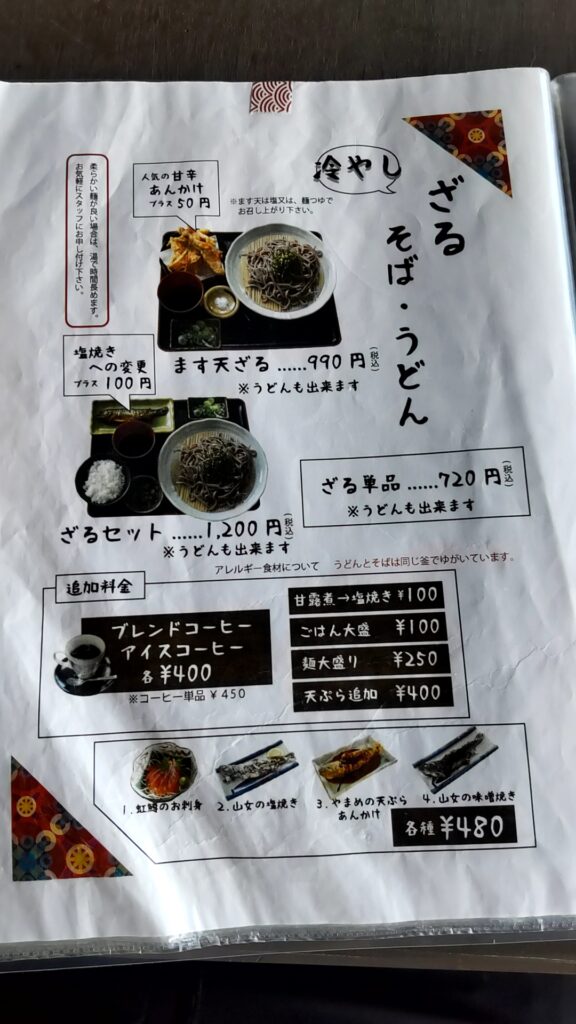 冷やし
ざる
そば・うどん
柔らかい麺が良い場合は、湯で時間長めます。
お気軽にスタッフにお申し付け下さい。
人気の甘辛
あんかけ
プラス50円
※ます天は塩又は、麺つゆで
お召し上がり下さい。
ます天ざる ……990円(税込)
※うどんも出来ます
塩焼き
への変更
プラス100円
ざるセット ……1,200円(税込)
※うどんも出来ます
ざる単品 ……720円(税込)
※うどんも出来ます
アレルギー食材について うどんとそばは同じ釜でゆがいています。
追加料金
ブレンドコーヒー
アイスコーヒー
各¥400
※コーヒー単品¥450
甘露煮→塩焼き¥100
ごはん大盛 ¥100
麺大盛り ¥250
天ぷら追加 ¥400
1.虹鱒のお刺身
2.山女の塩焼き
3.やまめの天ぷら
あんかけ
4.山女の味噌焼き
各種¥480